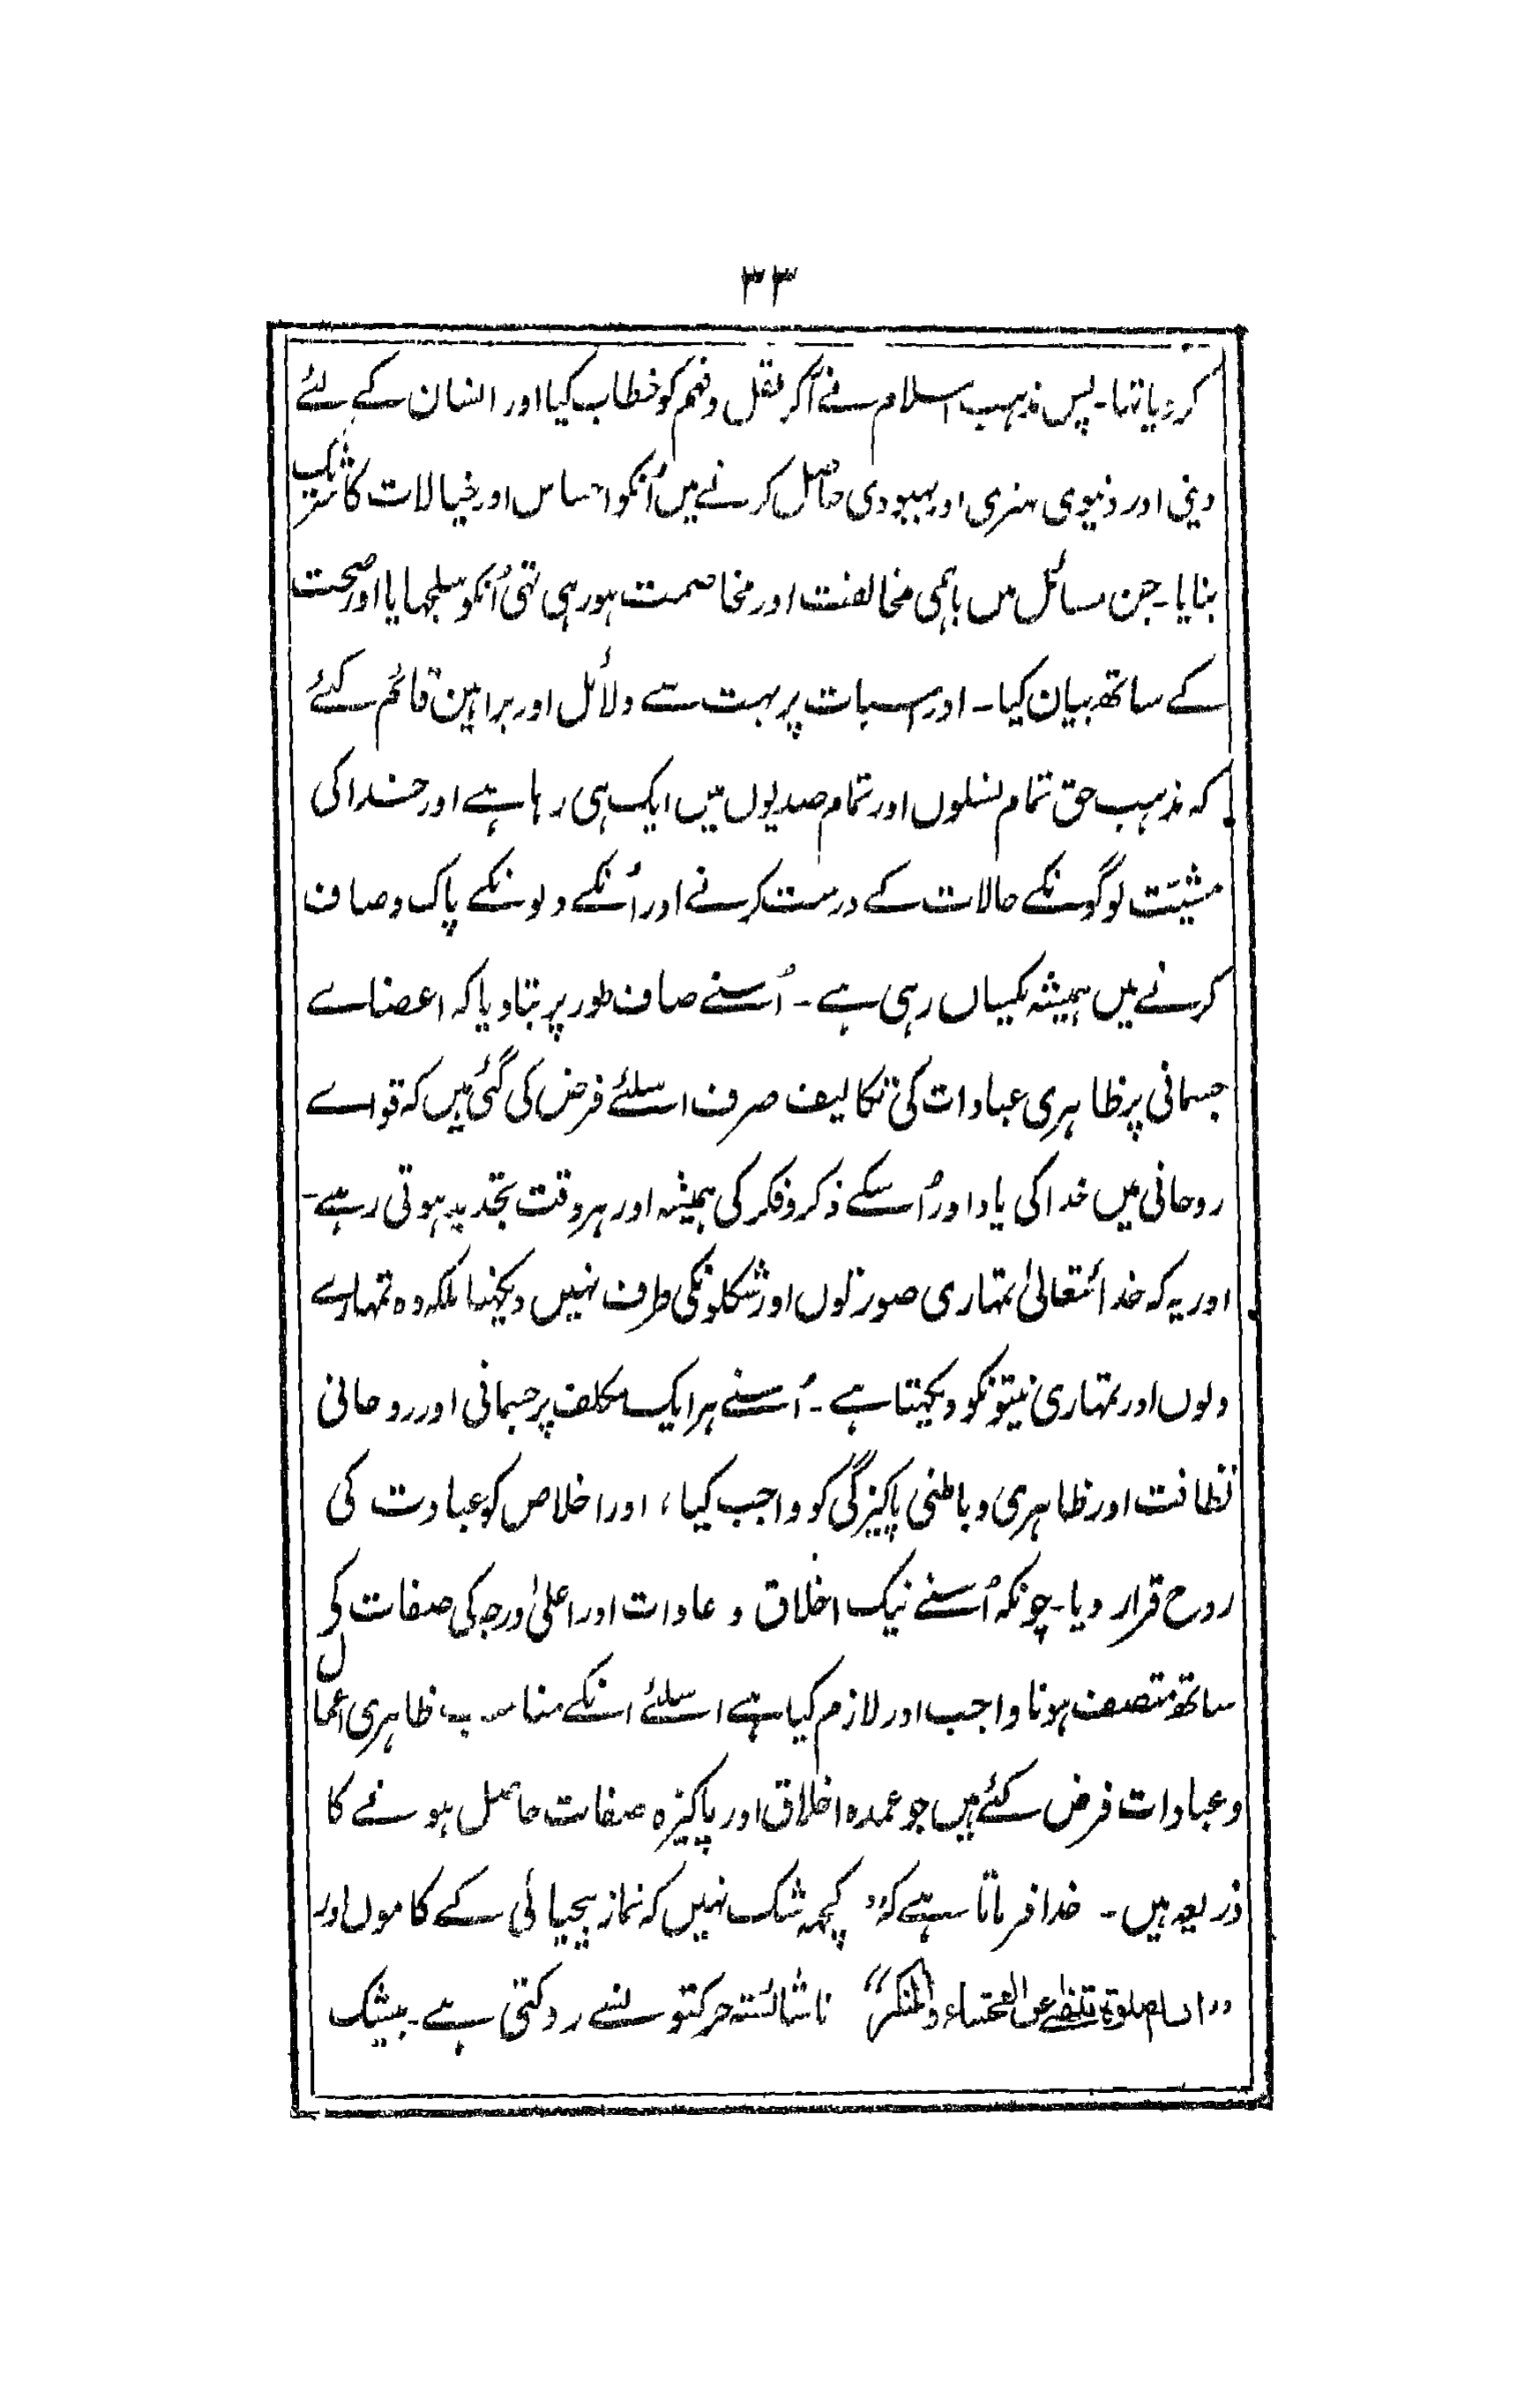 ۳۳
کردیا تہا۔ پس مذہب اسلام نے آکر عقل و فہم کو خطاب کیا اور انسان کے لئے
دینی اور دنیوی بہتری اور بہبودی حاصل کرنے میں اُنکو احساس اور خیالات کا شریک
بنایا۔ جن مسائل میں باہمی مخالفت اور مخاصمت ہورہی تہی اُنکو سلجہایا اور صحت
کے ساتھ بیان کیا۔ اور اسبات پر بہت سے دلائل اور براہین قائم کئے
کہ مذہب حق تمام نسلوں اور تمام صدیوں میں ایک ہی رہا ہے اور خدا کی
مشیّت لوگونکے حالات کے درست کرنے اور اُنکے دلونکے پاک و صاف
کرنے میں ہمیشہ یکساں رہی ہے۔ اُسنے صاف طور پر بتادیا کہ اعضاے
جسمانی پر ظاہری عبادات کی تکالیف صرف اسلئے فرض کی گئی ہیں کہ قواے
روحانی میں خدا کی یاد اور اُسکے ذکر و فکر کی ہمیشہ اور ہر وقت تجدید ہوتی رہے۔
اور یہ کہ خدائتعالیٰ تمہاری صورتوں اور شکلونکی طرف نہیں دیکہتا بلکہ وہ تمہارے
دلوں اور تمہاری نیتونکو دیکہتا ہے۔ اُسنے ہر ایک مکلف پر جسمانی اور روحانی
نظافت اور ظاہری و باطنی پاکیزگی کو واجب کیا، اور اخلاص کو عبادت کی
روح قرار دیا۔ چونکہ اُسنے نیک اخلاق و عادات اور اعلیٰ درجہ کی صفات کے
ساتھ متصف ہونا واجب اور لازم کیا ہے اسلئے انکے مناسب ظاہری اعمال
و عبادات فرض کئے ہیں جو عمدہ اخلاق اور پاکیزہ صفات حاصل ہونے کا
ذریعہ ہیں۔ خدا فرماتا ہے کہ "کچہہ شک نہیں کہ نماز بیحیائی کے کاموں اور
"ان الصلوۃ تنھیٰ عن الفحشاء والمنکر" ناشائستہ حرکتونسے روکتی ہے۔ بیشک